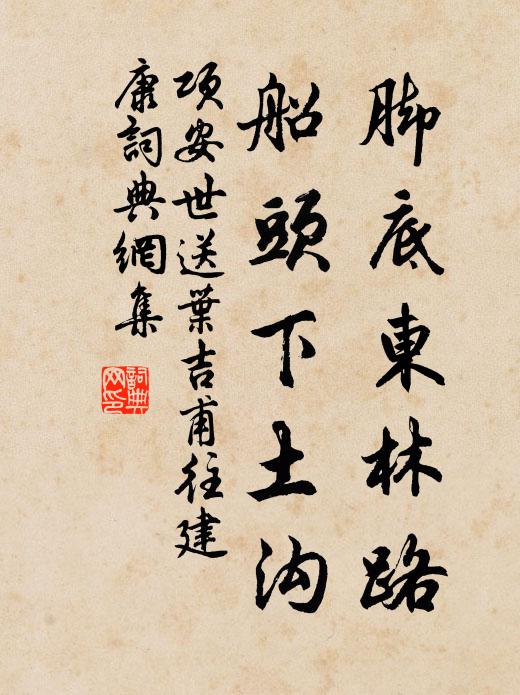 脚底東林路
船頭下土沟
項安世送葉吉甫往建
康詞典網集
詞典
网印